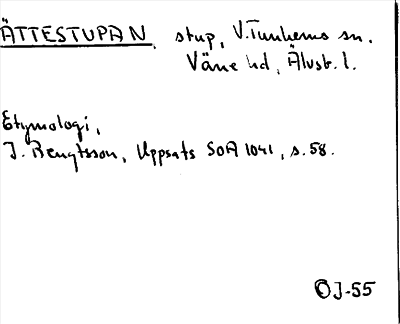 ÄTTESTUPAN. stup, V. Tunhems sn.
Väne hd, Älvsb. l.
Etymologi,
J. Bengtsson, Uppsats SOA 1041, s. 58.
OJ-55